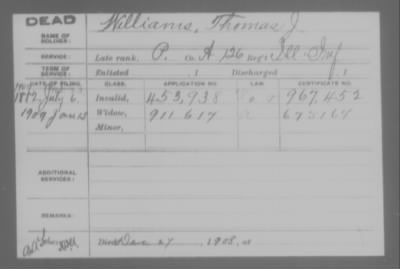 DEAD
NAME OF SOLDIER:
Williams, Thomas J.
SERVICE:
Late rank, P. Co. A 126 Reg't Ill Inf
TERM OF SERVICE:
Enlisted , 1 Discharged , 1
DATE OF FILING. CLASS. APPLICATION NO. LAW. CERTIFICATE NO.
July 6 Invalid, 453,938 967,452
1909 Jan Widow, 911 617
Minor,
ADDITIONAL SERVICES:
REMARKS:
Died Dec 27, 1908, at